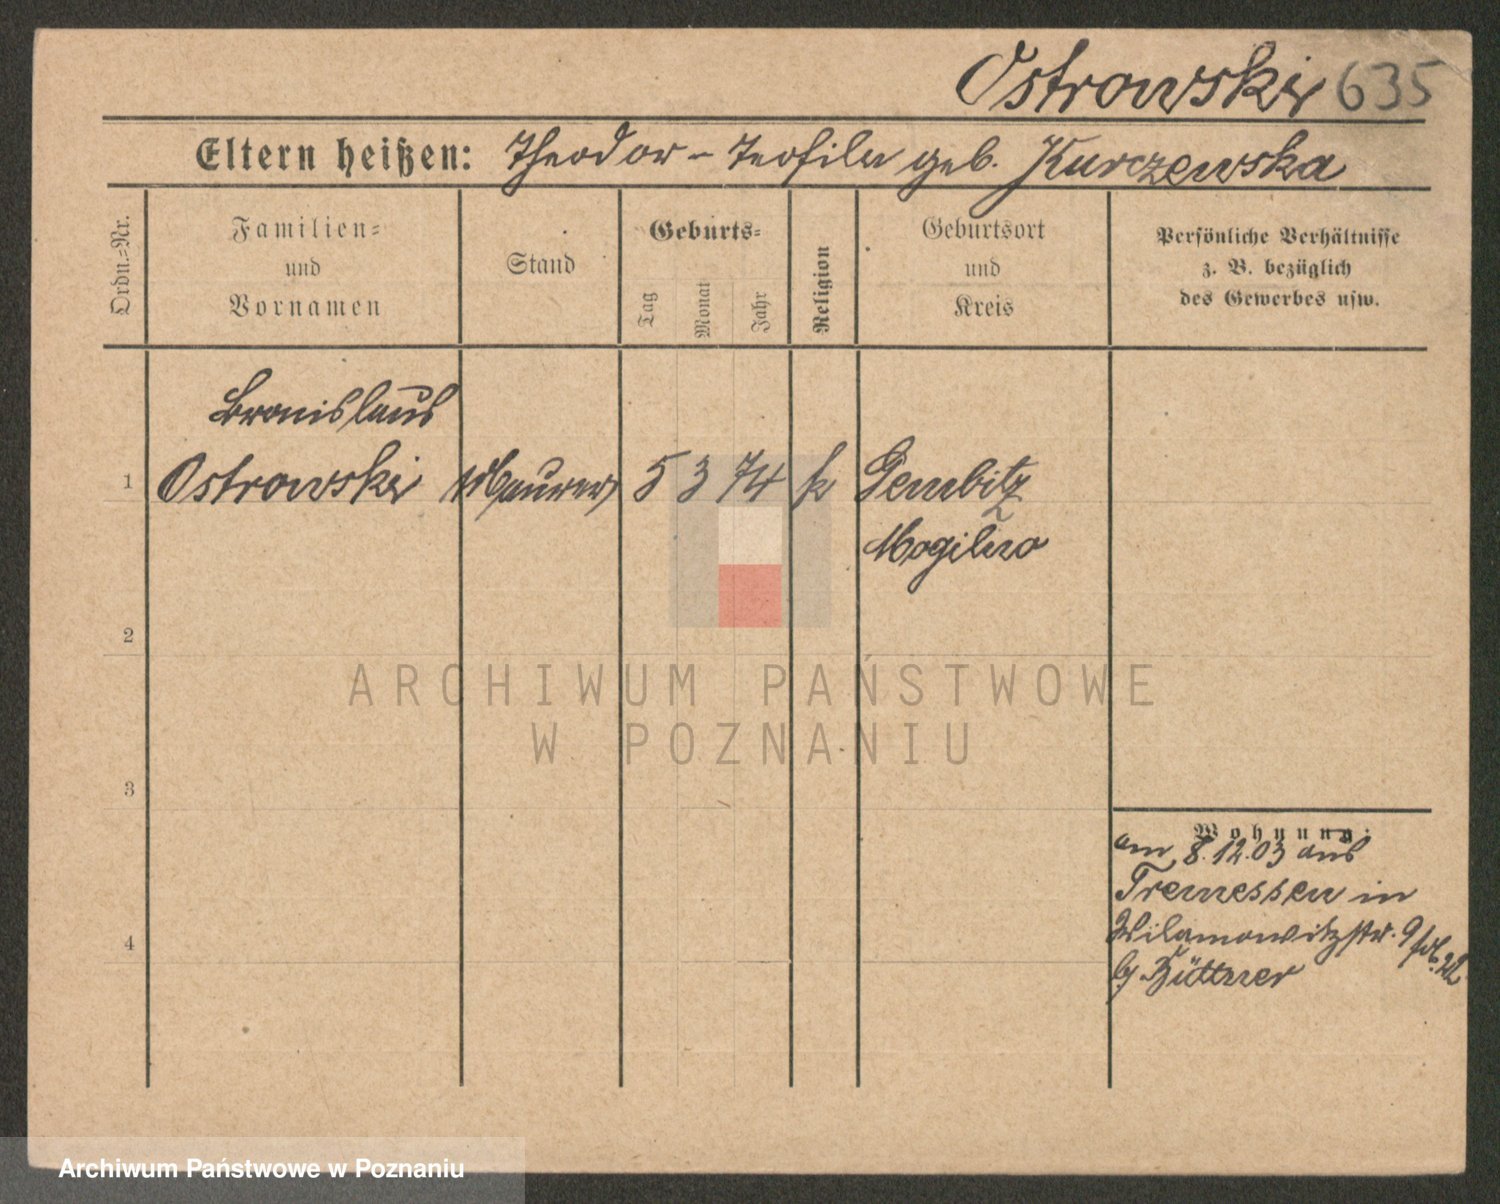 Ostrowski 635
Eltern heißen: Theodor – Teofila geb. Kurczewska
Ordn.-Nr.
Familien-
und
Vornamen
Stand
Geburts-
Tag
Monat
Jahr
Religion
Geburtsort
und
Kreis
Persönliche Verhältnisse
z. B. bezüglich
des Gewerbes usw.
Bronislaus
1 Ostrowski Maurer 5 3 74 k Gembitz
Mogilno
2
ARCHIWUM PAŃSTWOWE
W POZNANIU
3
Wohnung:
am 8.12.03 aus
Tremessen in
Wilamowitzstr. 9
b/ Büttner
4
Archiwum Państwowe w Poznaniu